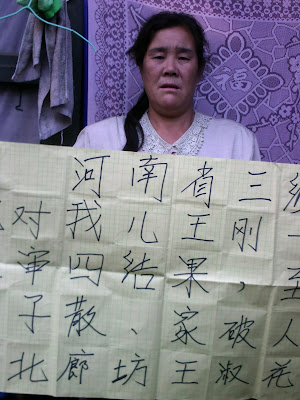 河南省三
对我儿王刚一
审四结果,至
子散、家破人
北廊坊王淑花